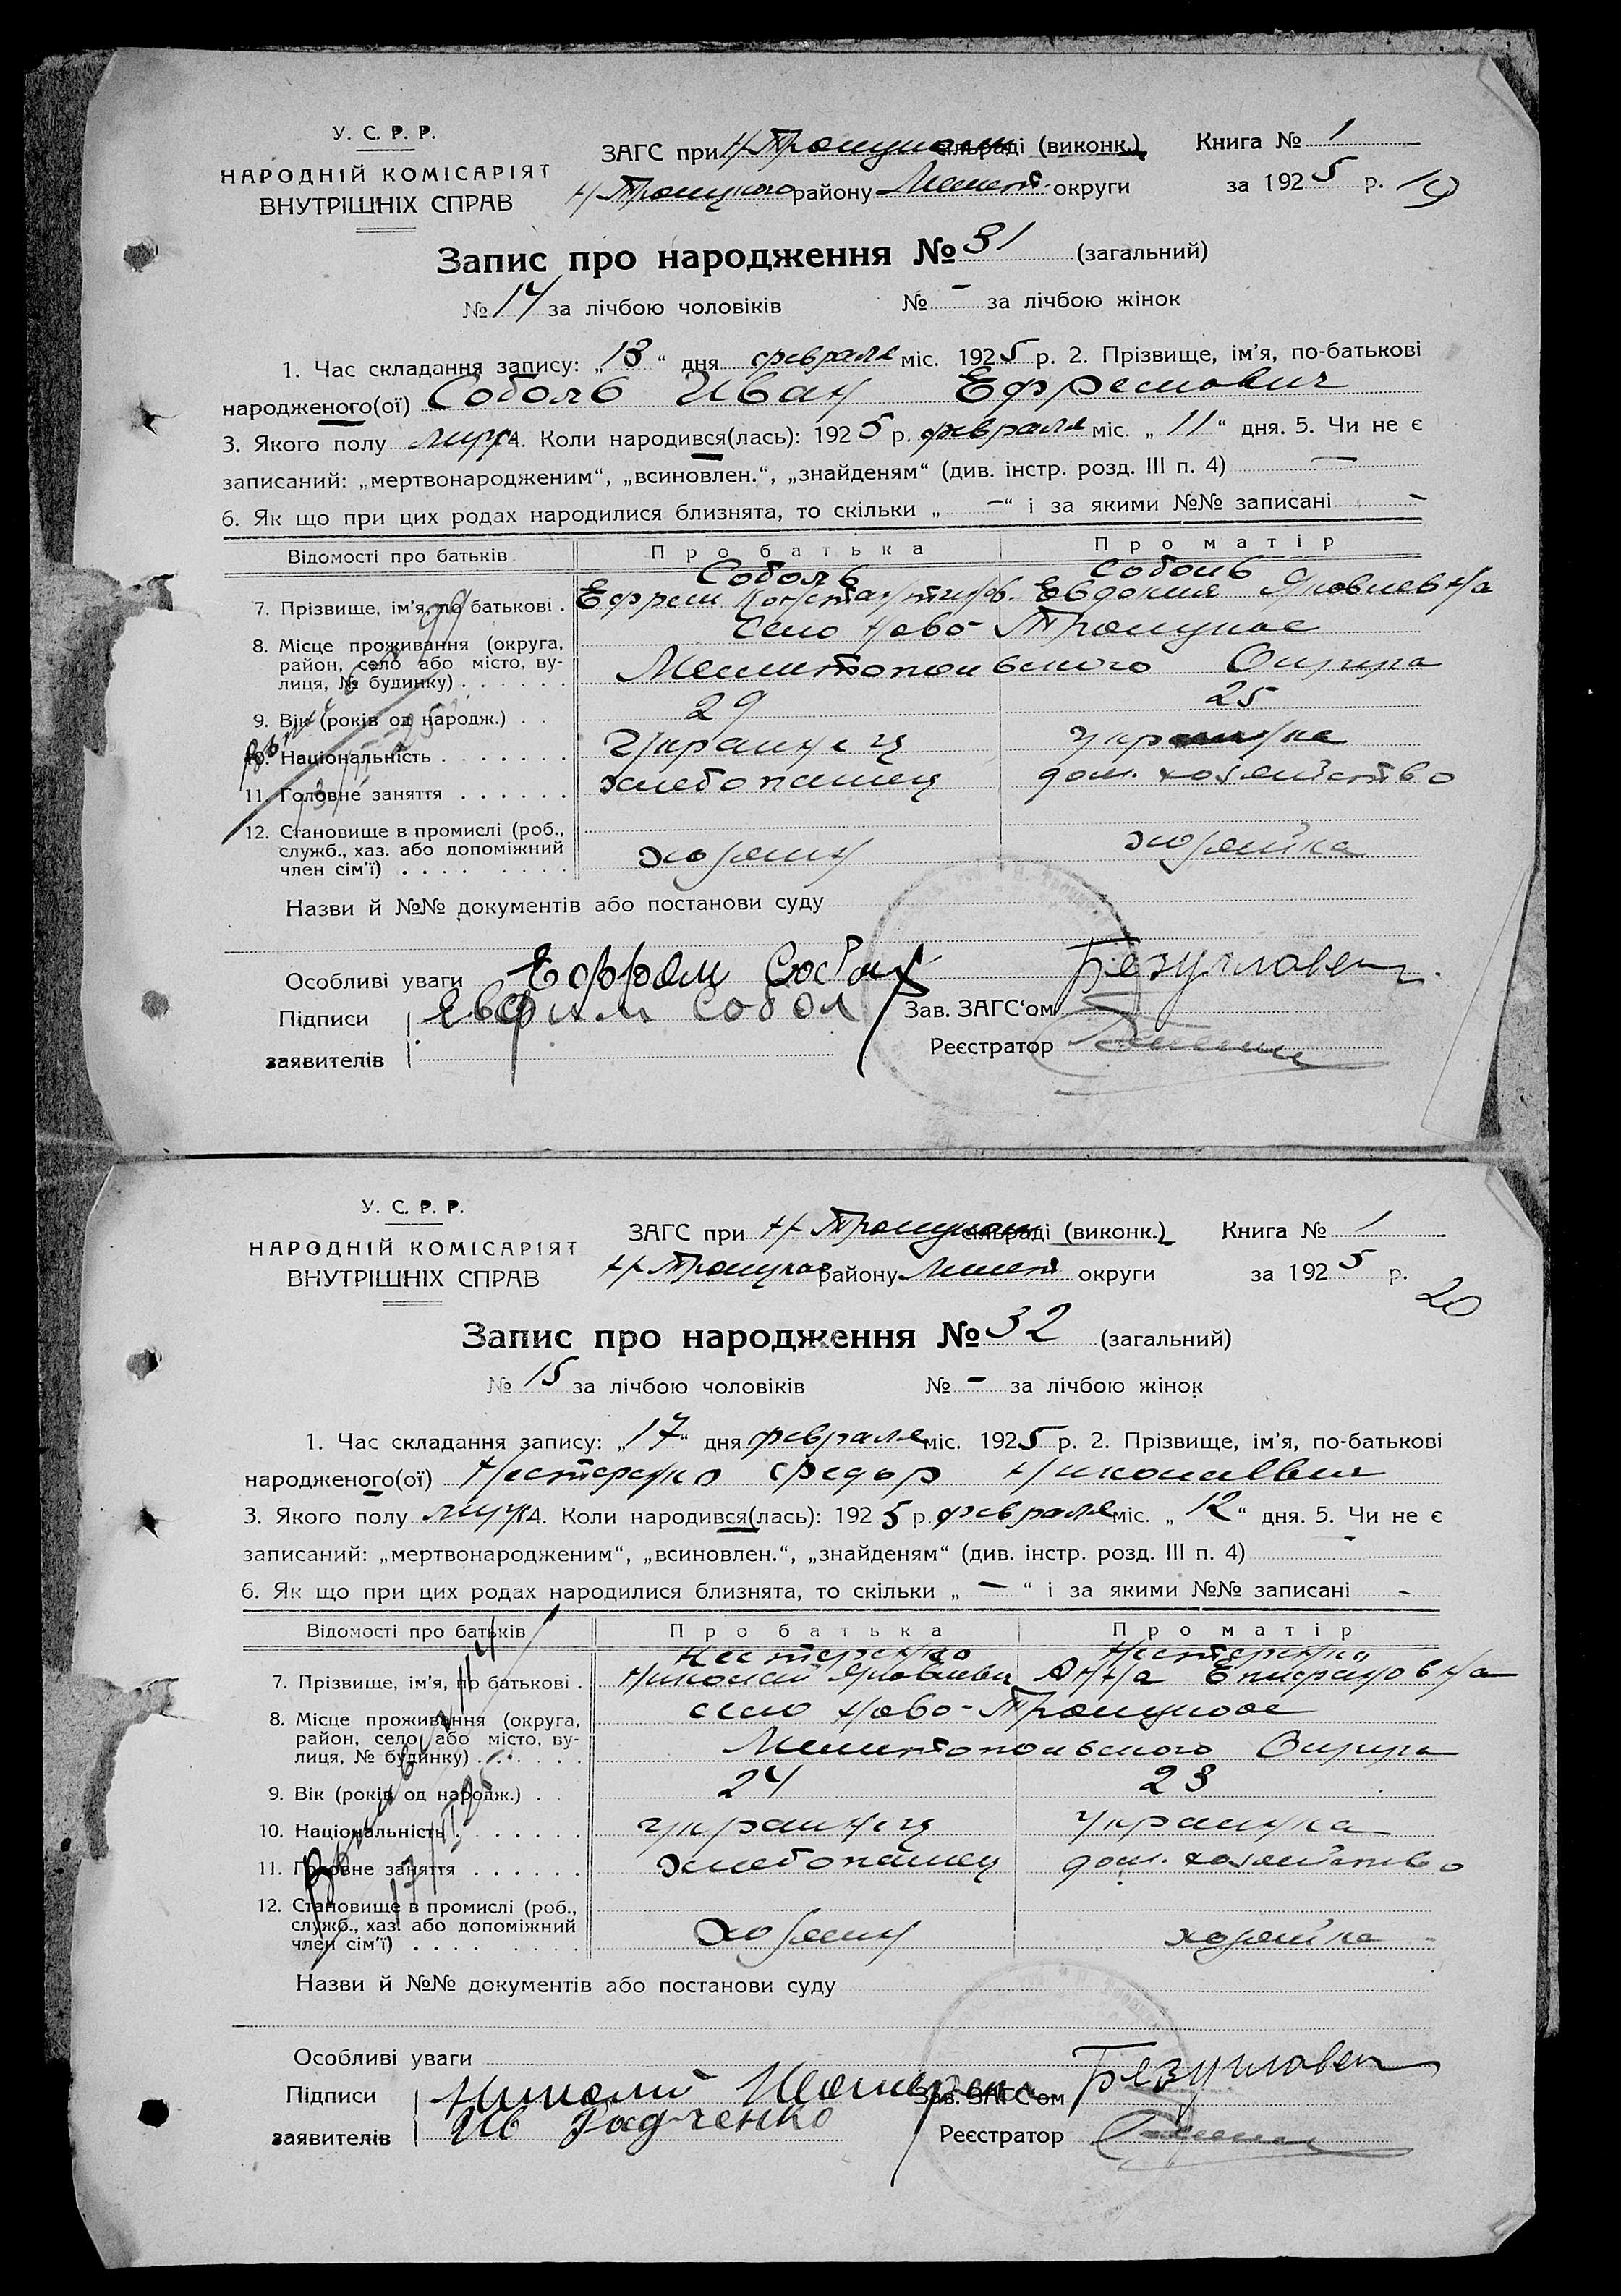 У. С. Р. Р.
НАРОДНІЙ КОМІСАРІЯТ
ВНУТРІШНІХ СПРАВ
ЗАГС при Н-Троицком сільраді (виконк.) Книга № 1
Н-Троицкого району Мелит. округи за 1925 р. 19
Запис про народження № 31 (загальний)
№ 14 за лічбою чоловіків № - за лічбою жінок
1. Час складання запису: „13“ дня февраля міс. 1925 р. 2. Прізвище, ім’я, по-батькові
народженого(ої) Соболь Иван Ефремович
3. Якого полу муж. 4. Коли народився(лась): 1925 р. февраля міс. „11“ дня. 5. Чи не є
записаний: „мертвонародженим“, „всиновлен.“, „знайденям“ (див. інстр. розд. III п. 4) —
6. Як що при цих родах народилися близнята, то скільки „—“ і за якими №№ записані -
Відомості про батьків Про батька Про матір
Соболь Соболь
7. Прізвище, ім’я, по батькові . Ефрем Константинов. Евдокия Яковлевна
8. Місце проживання (округа, район, село або місто, вулиця, № будинку) село Ново-Троицкое
Мелитопольского Округа
9. Вік (років од народж.) . . 29 25
10. Національність . . . . . . . Украинец украинка
11. Головне заняття . . . . . . хлебопашец дом. хозяйство
12. Становище в промислі (роб.,
служб., хаз. або допоміжний хозяин хозяйка
член сім’ї) . . . . . . . .
Назви й №№ документів або постанови суду
Особливі уваги Ефрем
Підписи Зав. ЗАГС‘ом
заявителів Реєстратор
У. С. Р. Р.
НАРОДНІЙ КОМІСАРІЯТ
ВНУТРІШНІХ СПРАВ
ЗАГС при Н-Троицком сільраді (виконк.) Книга № 1
Н-Троицкого району Мелит. округи за 1925 р. 20
Запис про народження № 32 (загальний)
№ 15 за лічбою чоловіків № - за лічбою жінок
1. Час складання запису: „17“ дня февраля міс. 1925 р. 2. Прізвище, ім’я, по-батькові
народженого(ої) Нестеренко Федор Николаевич
3. Якого полу муж. 4. Коли народився(лась): 1925 р. февраля міс. „12“ дня. 5. Чи не є
записаний: „мертвонародженим“, „всиновлен.“, „знайденям“ (див. інстр. розд. III п. 4) -
6. Як що при цих родах народилися близнята, то скільки „—“ і за якими №№ записані -
Відомості про батьків Про батька Про матір
Нестеренко Нестеренко
7. Прізвище, ім’я, по батькові . Николай Яковлевич Анна Епифановна
8. Місце проживання (округа, село Ново-Троицкое
район, село або місто, ву-
лиця, № будинку) . . . . . . Мелитопольского Округа
9. Вік (років од народж.) . . 24 23
10. Національність . . . . . . . украинец украинка
11. Головне заняття . . . . . . хлебопашец дом. хозяйство
12. Становище в промислі (роб.,
служб., хаз. або допоміжний хозяин хозяйка
член сім’ї) . . . . . . . .
Назви й №№ документів або постанови суду
Особливі уваги
Підписи Николай Зав. ЗАГС‘ом
заявителів Радченко Реєстратор